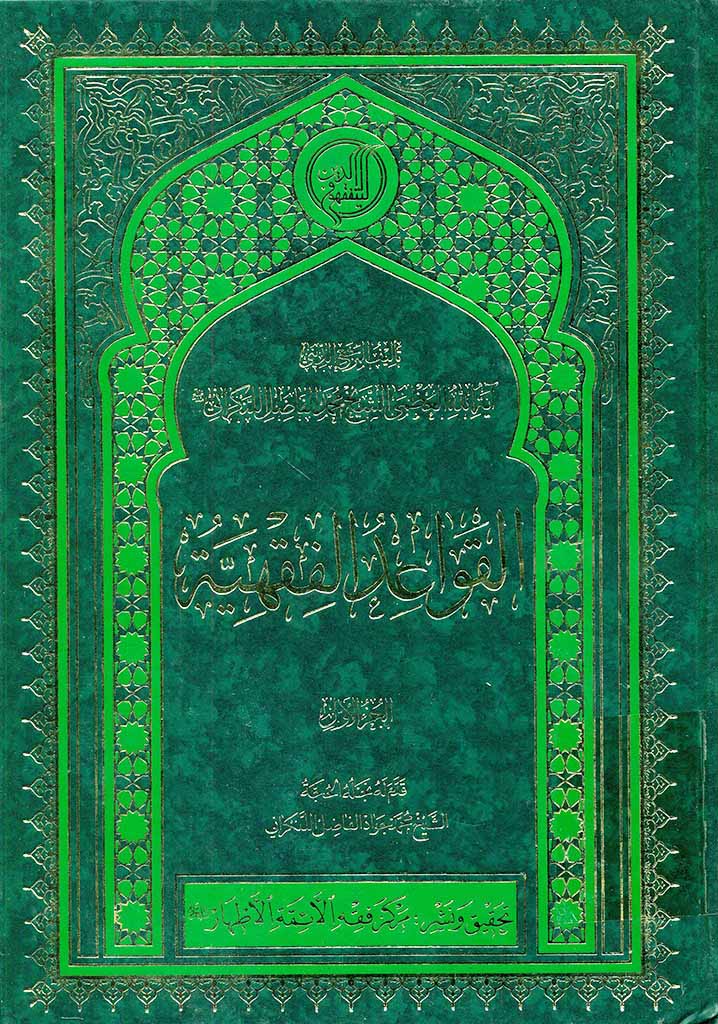 ليتفقهوا في الدين
تأليف المرجع الديني
آية الله العظمى الشيخ محمد الفاضل اللنكراني
القَواعِدُ الفِقهِيَّة
الجزء الأول
قدّم له نجله الحجّة
الشيخ محمد جواد الفاضل اللنكراني
تحقيق ونشر: مركز فقه الأئمة الأطهار